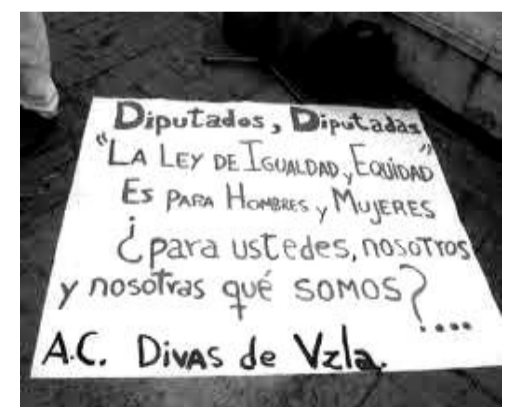 Diputados, Diputadas
"LA LEY DE IGUALDAD y EQUIDAD"
ES PARA HOMBRES y MUJERES
¿para ustedes, nosotros
y nosotras qué SOMOS?....
A.C. DIVAS de Vzla.